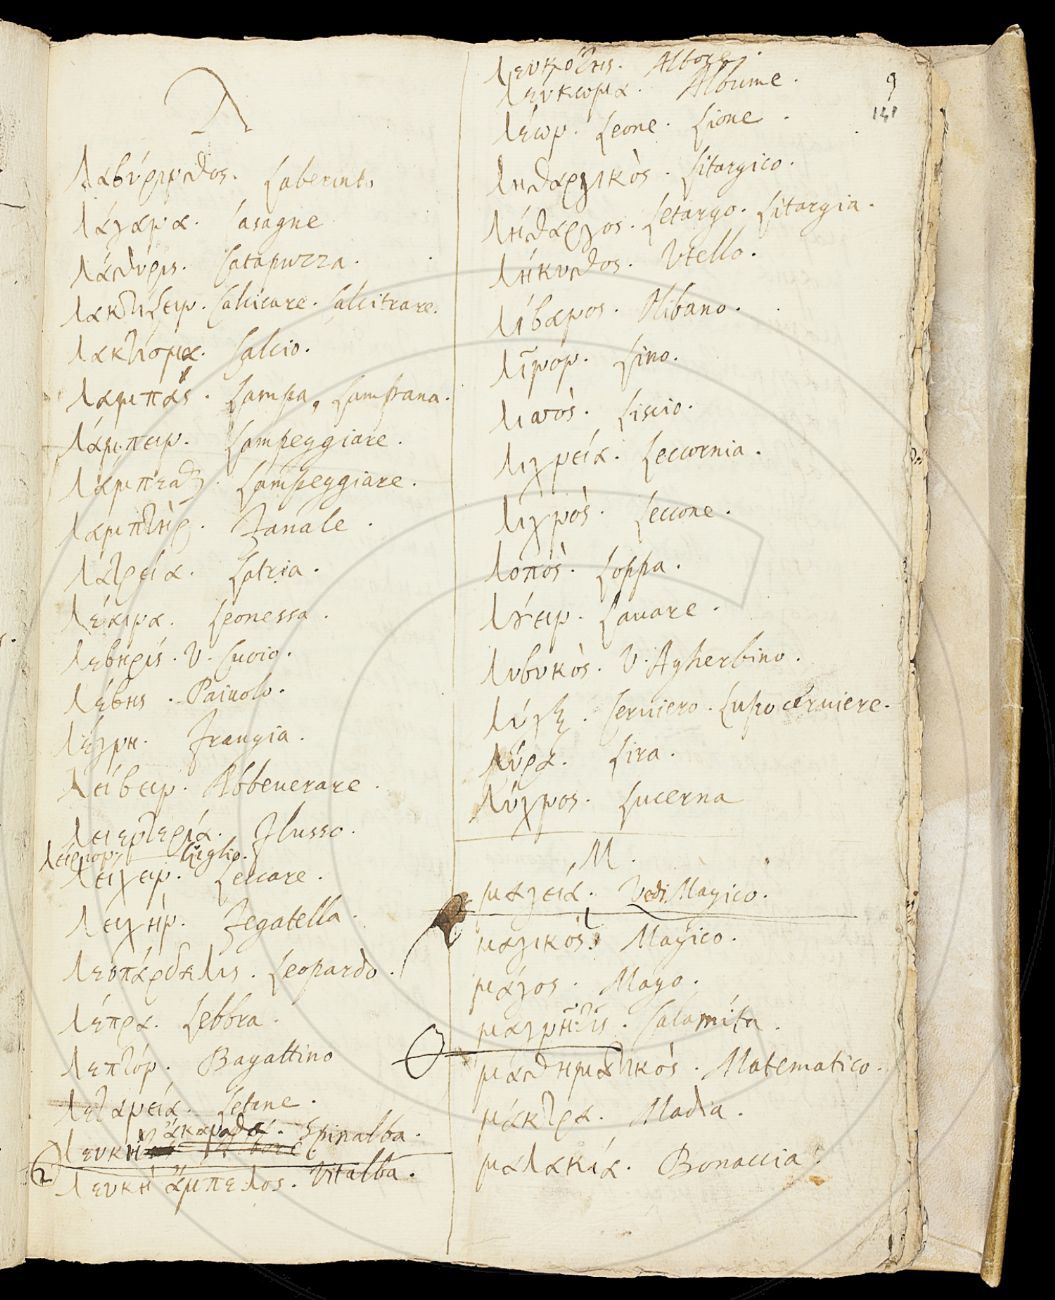 Λ
λαβύρινθος. Laberinto
λάγανα. Lasagne
λάθυρις. Catapuzza.
λακτίζειν. Calcicare. Calcitrare.
λακτισμα. Calcio.
λαμπὰς. Lampa, Lampana.
λάμπειν. Lampeggiare.
Lampeggiare.
λαμπτὴρ. Fanale.
λατρεία. Latria.
λέαινα. Leonessa.
λεβηρίς. V. Cuoio.
λέβης. Paiuolo.
λέγνη. Frangia.
λείβειν. Abbeuerare.
λειεντερία. Flusso.
λείριον. Giglio.
λείχειν. Leccare.
λειχήν. Fegatella.
λεοπάρδαλις. Leopardo.
λέπρα. Lebbra.
λεπτόν. Bagattino
λιτανεία. Letane.
λευκὴ ἄκανθα. Spinalba.
λευκὴ ἄμπελος. Vitalba.
9
141
λευκότης. Albore.
λευκωμα. Albume.
λέων. Leone. Lione.
ληθαργικὸς. Litargico.
λήθαργος. Letargo. Litargia.
λήκυθος. Utello.
λίβανος. Olibano.
λῖνον. Lino.
Liscio.
λιχνεία. Leccornia.
λιχνὸς. Leccone.
λοπὸς. Loppa.
λούειν. Lauare.
λυβυκὸς. V. Agherbino.
λύγξ. Ceruiero. Lupo ceruiere.
λύρα. Lira.
λύχνος. Lucerna
M.
μαγεία. Vedi Magico.
μαγικός. Magico.
μάγος. Mago.
μαγνῆτις. Calamita.
μαθηματικὸς. Matematico.
μάκτρα. Madia.
μαλακία. Bonaccia.